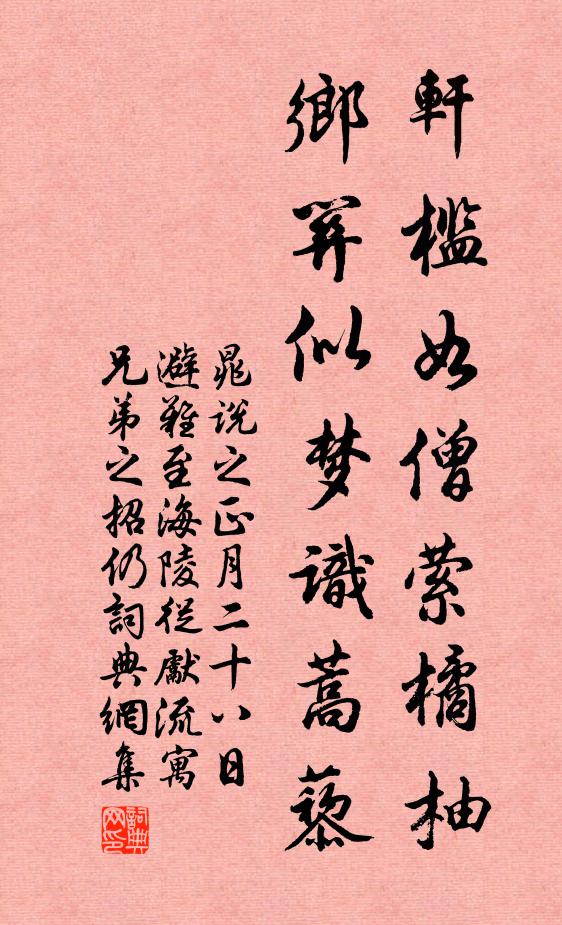 軒檻如僧縈橘柚
鄉關似夢識蒿藜
晁說之正月二十八日
避難至海陵從獻流寓
兄弟之招仍詞典網集
詞典网印